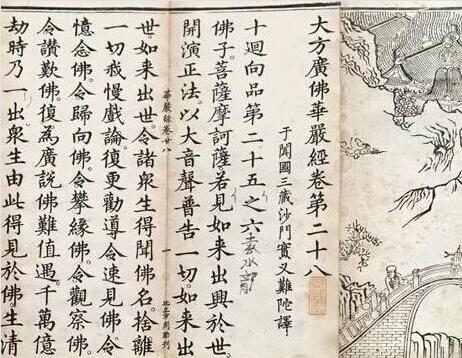 大方廣佛華嚴經卷第二十八
于闐國三藏沙門實叉難陀譯
十迴向品第二十五之六
佛子。菩薩摩訶薩若見如来出興於世。
開演正法。以大音聲普告一切。如来出
華嚴經卷廿八
世。如来出世。令諸衆生得聞佛名。捨離
一切我慢戲論。復更勸導令速見佛。令
憶念佛。令歸向佛。令攀緣佛。令觀察佛。
令讚歎佛。復為廣說佛難值遇。千萬億
劫時乃一出。衆生由此得見於佛。生清